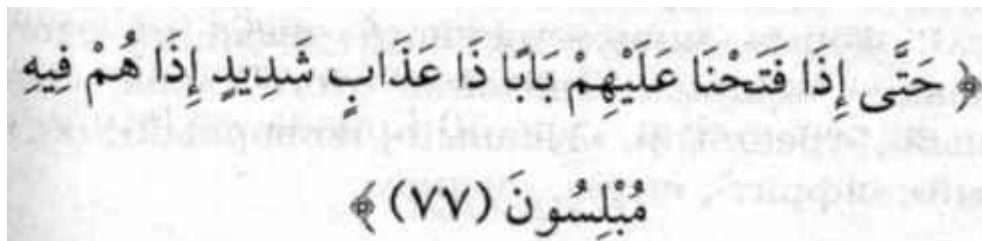 ﴿ حَتَّى إِذَا فَتَحْنَا عَلَيْهِمْ بَابًا ذَا عَذَابٍ شَدِيدٍ إِذَا هُمْ فِيهِ
مُبْلِسُونَ (٧٧) ﴾